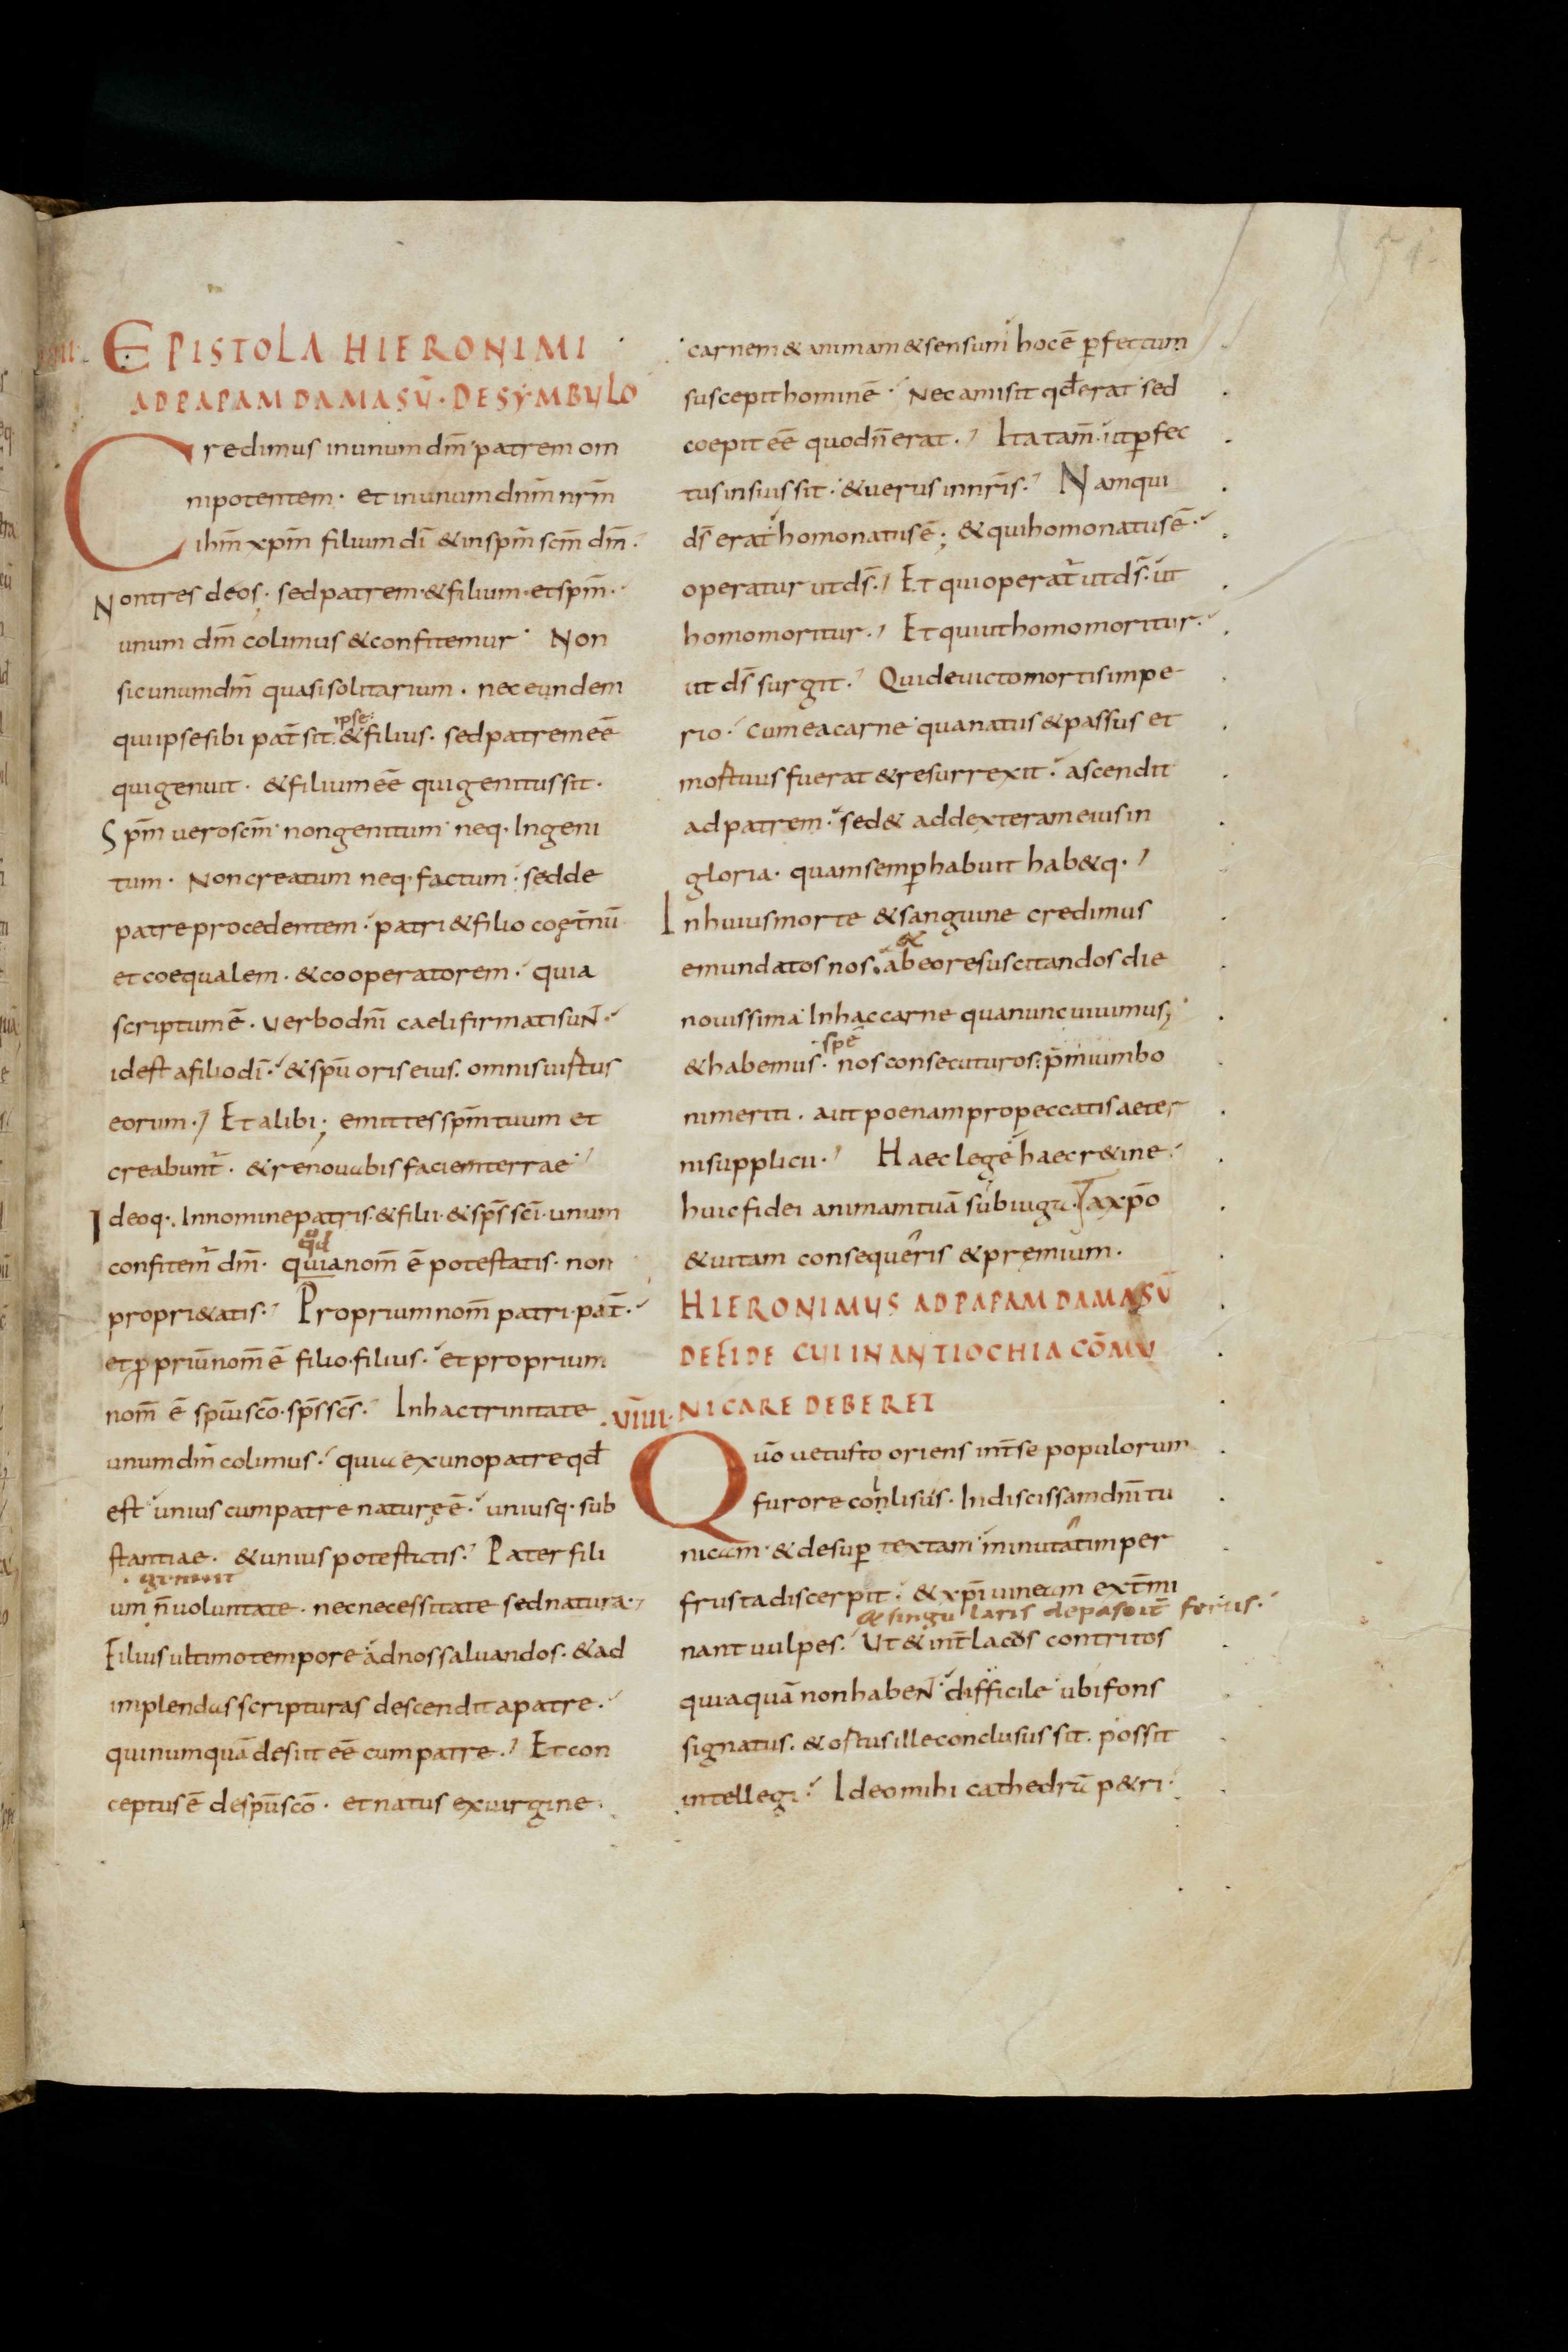 EPISTOLA HIERONIMI
AD PAPAM DAMASŪ · DE SYMBULO
Credimus in unum dm̄ patrem om
nipotentem · et in unum dnm̄ nrm̄
ihm̄ xpm̄ filium dī & in spm̄ scm̄ dm̄ ·
Non tres deos · sed patrem · & filium · et spm̄ ·
unum dm̄ colimus & confitemur · Non
sic unum dm̄ quasi solitarium · nec eundem
ipse
qui ipse sibi pat̄ sit · & filius · sed patrem eē
qui genuit · & filium eē qui genitus sit ·
Spm̄ vero scm̄ non genitum neq · Ingeni
tum · Non creatum neq · factum · sed de
patre procedentem · patri & filio coęt̄nū
et coequalem · & cooperatorem · quia
scriptum ē · Verbo dnī caeli firmati suNT ·
id est a filio dī · & spū oris eius · omnis uirtus
eorum · Et alibi ; emittes spm̄ tuum et
creabunt̄ · & renouabis faciem terrae
Ideoq · In nomine patris · & filii · & sp̄s scī · unum
qd
confitem̄ dm̄ · quia nom̄ ē potestatis · non
propri&atis · Proprium nom̄ patri · pat̄ ·
et ꝓpriū nom̄ ē filio · filius · et proprium
nom̄ ē spūi scō · sp̄s scs̄ · In hac trinitate
unum dm̄ colimus · quia ex uno patre qd̄
est unius cum patre naturę ē · uniusq · sub
stantiae · & unius potestatis · Pater fili
genuit
um n̄ uoluntate · nec necessitate sed natura ·
Filius ultimo tempore ad nos saluandos · & ad
implendas scripturas descendit a patre ·
qui numquā desiit eē cum patre · Et con
ceptus ē de spū scō · et natus ex uirgine ·
carnem & animam & sensum hoc ē ꝑfectum
suscepit hominē · Nec amisit qd̄ erat sed
coepit eē quod n̄ erat · Ita tam̄ · ut ꝑfec
tus in suis sit · & uerus in nrīs · Nam qui
ds̄ erat homo natus ē ; & qui homo natus ē ·
operatur ut ds̄ · Et qui operat̄ ut ds̄ · ut
homo moritur · Et qui ut homo moritur ·
ut ds̄ surgit · Qui deuicto mortis impe
rio · cum ea carne qua natus & passus et
mortuus fuerat & resurrexit · ascendit
ad patrem · sed & ad dexteram eius in
gloria · quam semꝑ habuit hab&q ·
In huius morte & sanguine credimus
&
emundatos nos · ab eo resuscitandos die
nouissima In hac carne qua nunc uiuimus ;
spē
& habemus · nos consecuturos · p̄mium bo
ni meriti · aut poenam pro peccatis aeter
ni supplicii · Haec lege haec r&ine ·
huic fidei animam tuā subiuga · Ta xpō
& uitam consequeris & premium ·
HIERONIMUS AD PAPAM DAMASŪ
DE FIDE CUI IN ANTIOCHIA CŌMU
· VIIII · NICARE DEBERET
Quō uetusto oriens int̄ se populorum
furore conlisus · Indiscissam dnī tu
nicam · & desuꝑ textam minutatim per
frusta discerpit · & xpī uineam ext̄mi
& singularis depascit ferus ·
nant uulpes · Ut & int̄ lacos contritos
qui aquā non habeNT · difficile ubi fons
signatus · & ortus ille conclusus sit · possit
intellegi · Ideo mihi cathedrā p&ri ·